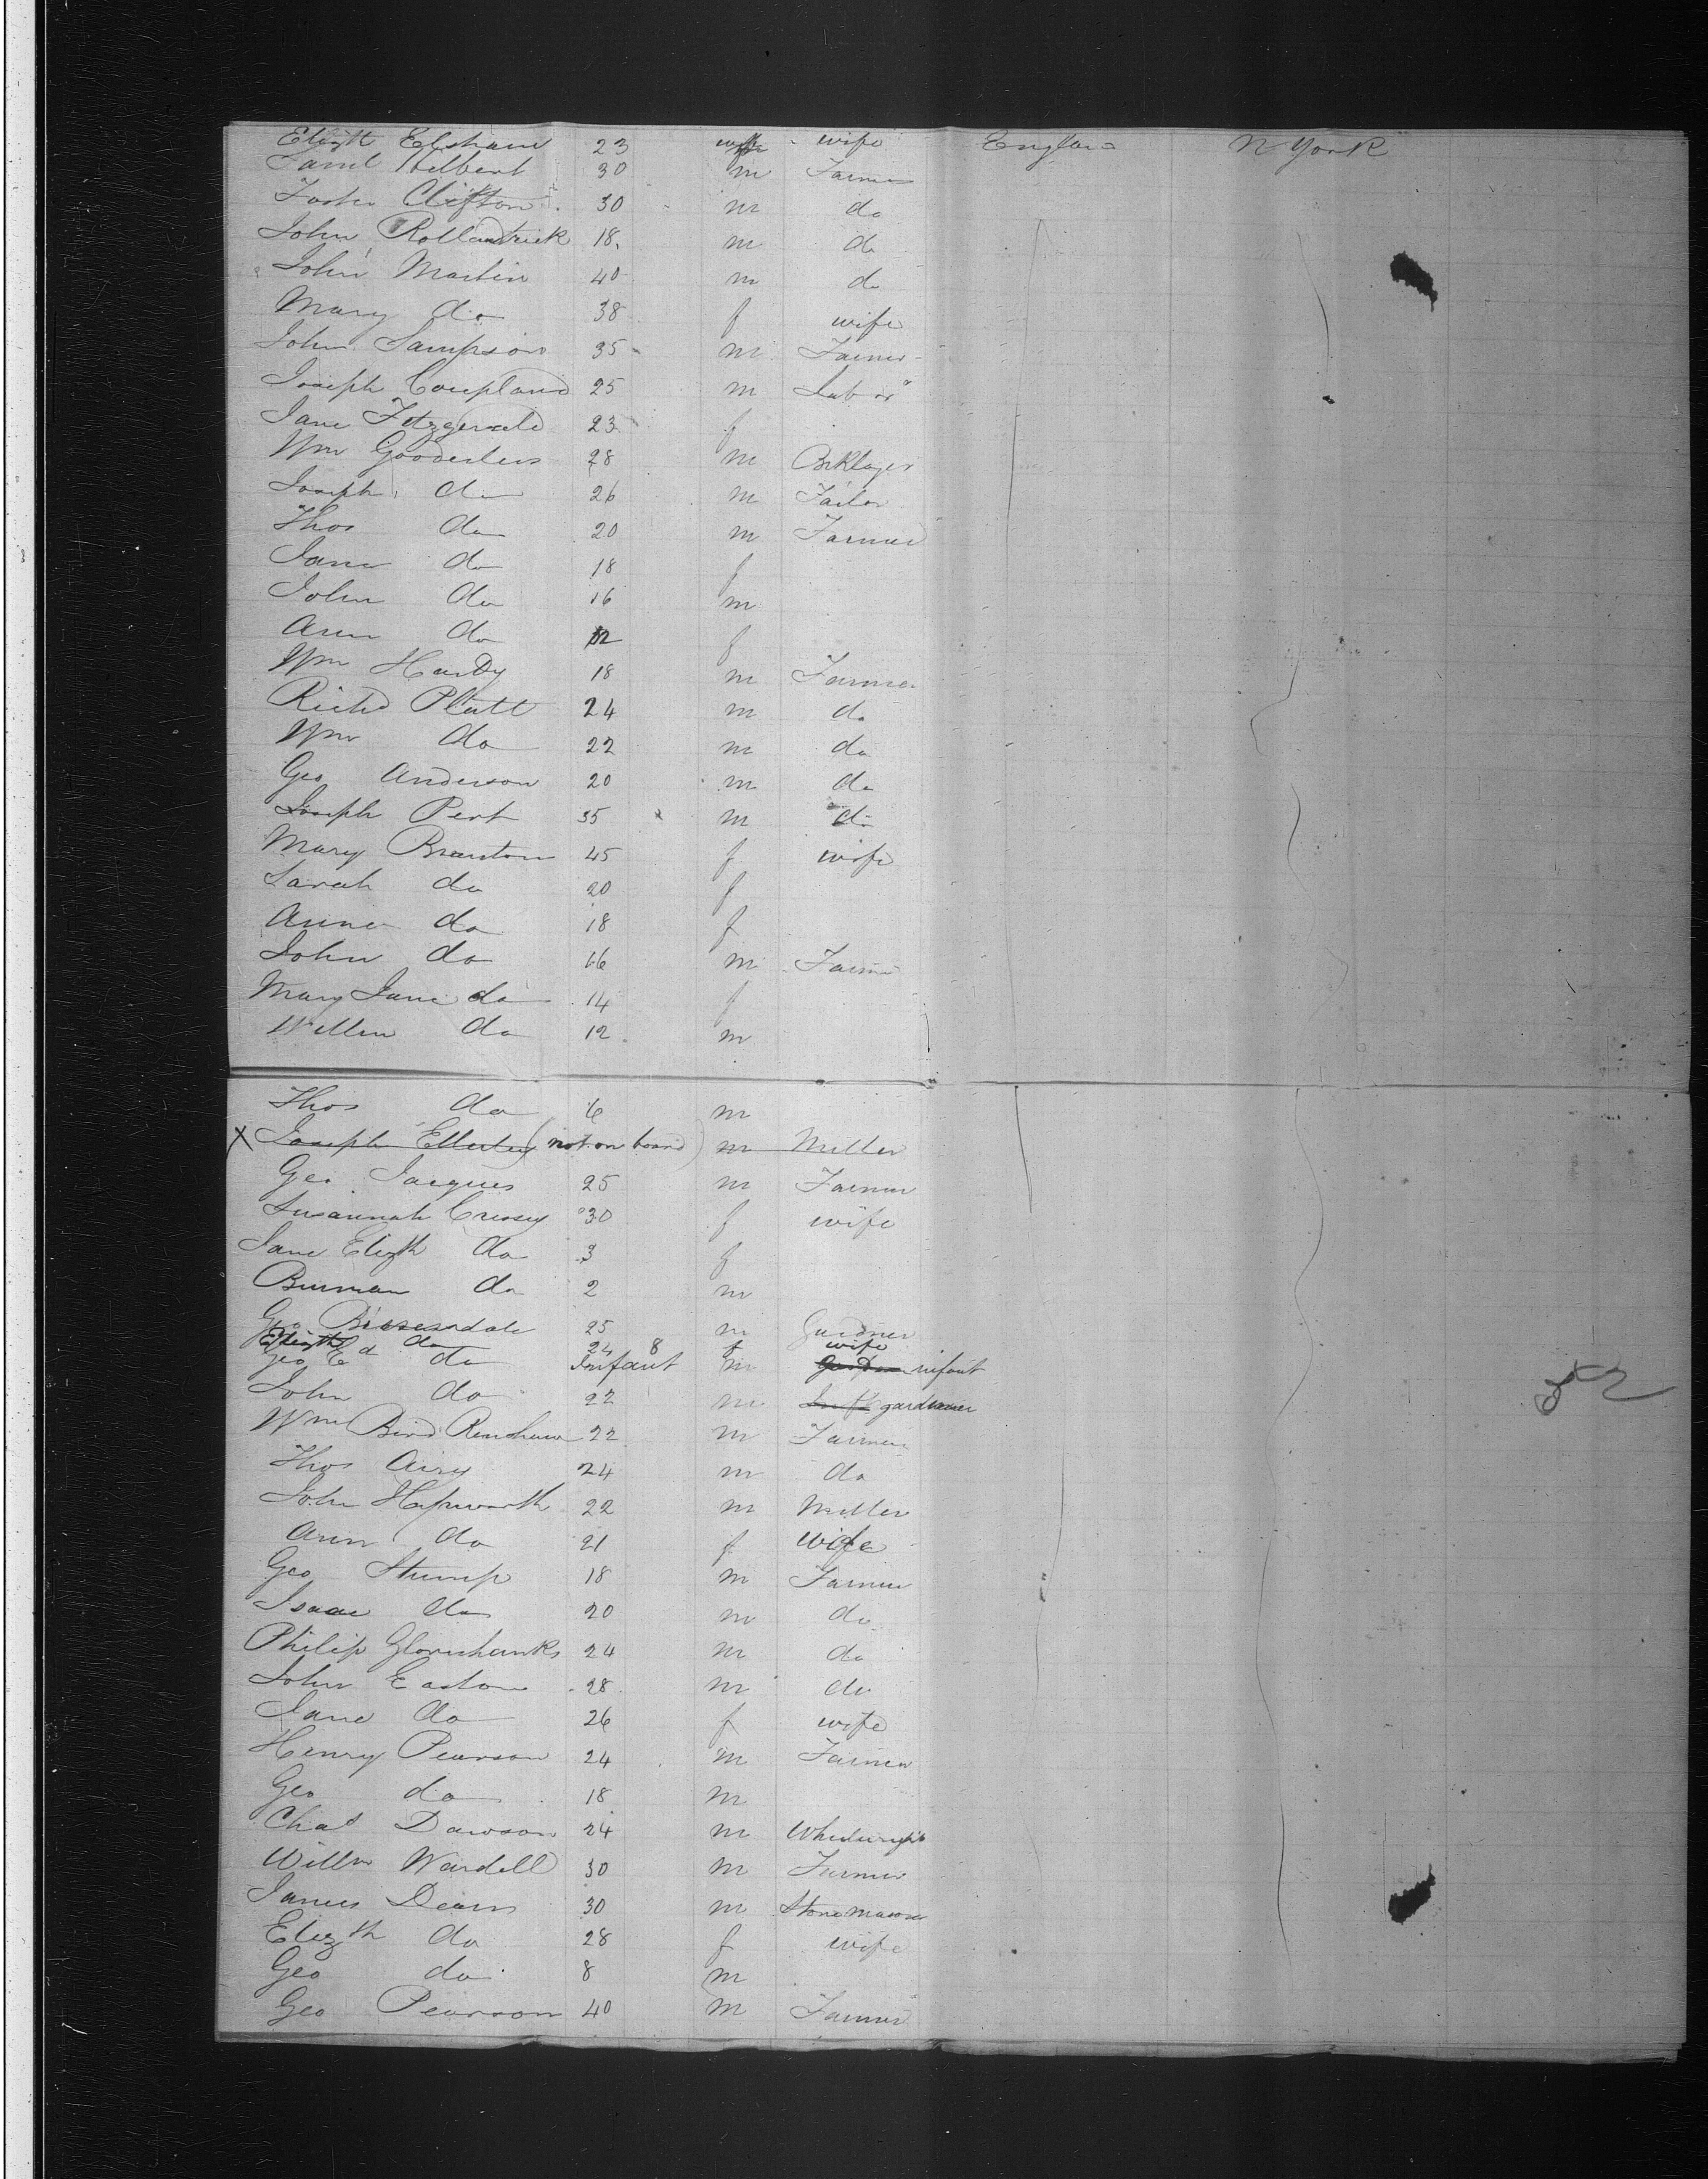 Elizth Elsham 23 wife wife England N York
Saml Hilbert 30 m Farmer
Foster Clifton 30 m do
John Rollandrick 18 m do
John Martin 40 m do
Mary do 38 f wife
John Sampson 35 m Farmer
Joseph Coupland 25 m Labor
Jane Fitzgerald 23 f
Wm 28 m Bcklayer
Joseph do 26 m Tailor
Thos do 20 m Farmer
Jane do 18 f
John do 16 m
Ann do 12 f
Wm Hardy 18 m Farmer
Richd Platt 24 m do
Wm do 22 m do
Geo Anderson 20 m do
Joseph Pert 35 m do
Mary Branton 45 f wife
Sarah do 20 f
Anna do 18 f
John do 16 m Farmer
Mary Jane do 14 f
Willm do 12 m
Thos do 6 m
X Joseph Ellerby (not on board) m Miller
Geo Jacques 25 m Farmer
Susannah Cressey 30 f wife
Jane Elizth do 3 f
Burman do 2 m
Geo 25 m Gardner
Elizth do 24 8 f wife
Geo Ed do Infant m infant
John do 22 m gardener
Wm Bird Renshaw 22 m Farmer
Thos Airy 24 m do
John Hepworth 22 m Miller
Ann do 21 f wife
Geo Stump 18 m Farmer
Isaac do 20 m do
Philip 24 m do
John Easton 28 m do
Jane do 26 f wife
Henry Pearson 24 m Farmer
Geo do 18 m
Chas Dawson 24 m Wheelwright
Willm Wardell 30 m Farmer
James Dears 30 m Stone mason
Elizth do 28 f wife
Geo do 8 m
Geo Pearson 40 m Farmer
52